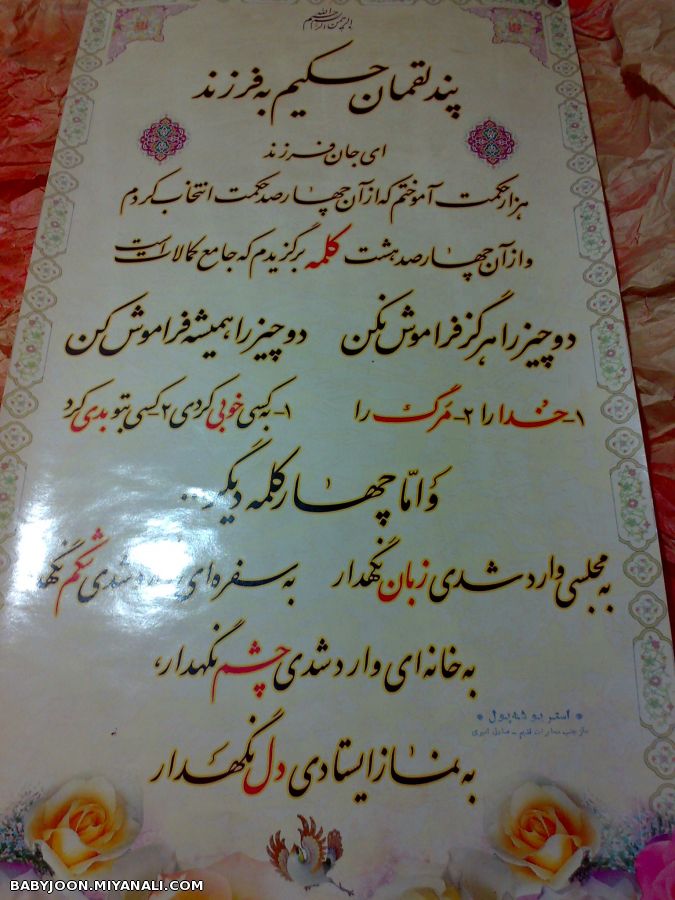 بسم الله الرحمن الرحیم
پند لقمان حکیم به فرزند
ای جان فرزند
هزار حکمت آموختم که از آن چهارصد حکمت انتخاب کردم
و از آن چهارصد هشت کلمه برگزیدم که جامع کمالات است
دو چیز را هرگز فراموش نکن دو چیز را همیشه فراموش کن
۱- خدا را ۲- مرگ را ۱- به کسی خوبی کردی ۲- کسی بتو بدی کرد
و امّا چهار کلمه دیگر...
به مجلسی وارد شدی زبان نگهدار به سفره ای شدی شکم نگهد
به خانه ای وارد شدی چشم نگهدار،
به نماز ایستادی دل نگهدار
BABYJOON.MIYANALI.COM